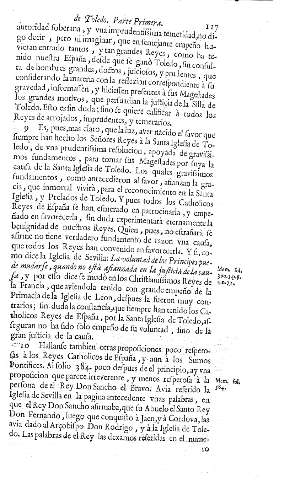 de Toledo. Parte Primera. 117
autoridad soberana, y vna imprudentissima temeridad, no di-
go decir, pero ni imaginar, que en semejante empeño ha-
vieran entrado tantos, y tan grandes Reyes, como ha te-
nido nuestra España, desde que se ganò Toledo, sin consul-
ta de hombres grandes, doctos, juiciosos, y prudentes, que
considerando la materia con la reflexion correspondiente à su
gravedad, informassen, y hiciessen presentes à sus Magestades
los grandes motivos, que persuadian la justicia de la Silla de
Toledo. Esto es sin duda: sino se quiere calificar à todos los
Reyes de arrojados, imprudentes, y temerarios.
9 Es, pues, mas claro, que la luz, aver nacido el favor que
siempre han hecho los Señores Reyes à la Santa Iglesia de To-
ledo, de vna prudentissima resolucion, apoyada de gravissi-
mos fundamentos, para tomar sus Magestades por suya la
causa de la Santa Iglesia de Toledo. Los quales gravissimos
fundamentos, como antecedieron al favor, afianzan la gra-
cia, que inmortal vivirà, para el reconocimiento en la Santa
Iglesia, y Prelados de Toledo. Y pues todos los Catholicos
Reyes de España se han esmerado en patrocinarla, y empe-
ñado en favorecerla, sin duda experimentarà eternamente la
benignidad de nuestros Reyes. Quien, pues, no estrañarà se
afirme no tiene verdadero fundamento de razon vna causa,
que todos los Reyes han convenido en favorecerla. Y si, co-
mo dice la Iglesia de Sevilla: La voluntad de los Principes pue-
de mudarse, quando no està afianzada en la justicia de la cau-
sa, y por esto dice se mudò en los Christianissimos Reyes de
la Francia, que aviendola tenido con grande empeño de la
Primacìa de la Iglesia de Leon, despues la fueron muy con-
trarios; sin duda la constancia, que siempre han tenido los Ca-
tholicos Reyes de España, por la Santa Iglesia de Toledo, as-
seguran no ha sido solo empeño de su voluntad, sino de la
gran justicia de la causa.
10 Hallanse tambien otras proposiciones poco respeto-
sas à los Reyes Catholicos de España, y aun à los Sumos
Pontifices. Al folio 384. poco despues del principio, ay vna
proposicion que parece irreverente, y menos respetosa à la
persona de el Rey Don Sancho el Bravo. Avia referido la
Iglesia de Sevilla en la pagina antecedente vnas palabras, en
que el Rey Don Sancho afirmaba, que su Abuelo el Santo Rey
Don Fernando, luego que conquistò à Jaen, y à Cordova, las
avia dado al Arçobispo Don Rodrigo, y à la Iglesia de Tole-
do. Las palabras de el Rey las dexamos referidas en el nume-
ro
Mem. Sev.
Mem. Sev.
384.